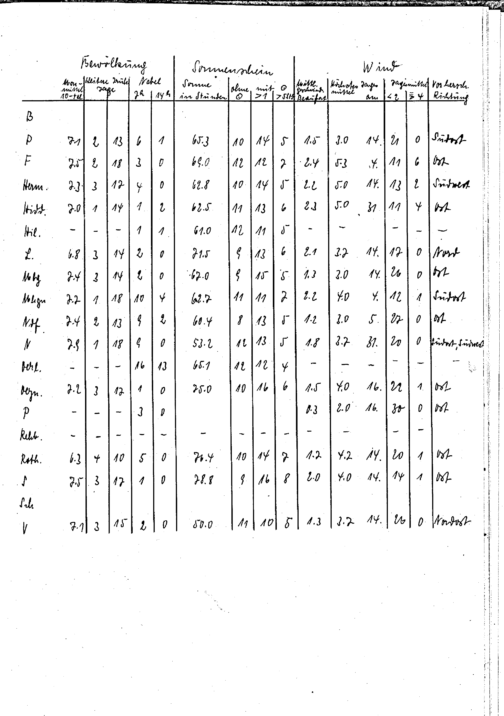 Bewölkung Sonnenschein Wind
Mon- mittel 10-tel heitere trübe Tage Nebel 7h 14h Sonne in Stunden ohne ⊙ mit >1 ⊙ >5Std mittl. Beaufort Höchstes Tages- mittel am Tagesmittel <2 ≥4 Vorhersch. Richtung
B
P 7.1 2 13 6 1 65.3 10 14 5 1.5 3.0 14. 21 0 Südost
F 7.5 2 18 3 0 69.0 12 12 7 2.4 5.3 4. 11 6 Ost
Herm. 7.3 3 17 4 0 62.8 10 14 5 2.2 5.0 14. 13 2 Südwest
Hidd. 7.0 1 14 1 2 62.5 11 13 6 2.3 5.0 31 11 4 Ost
Hil. - - - 1 1 61.0 12 11 5 - - - - -
L. 6.8 3 14 2 0 71.5 9 13 6 2.1 3.7 14. 17 0 Nord
Mbg 7.4 3 14 2 0 67.0 9 15 5 1.3 3.0 14. 26 0 Ost
Mbgn 7.7 1 18 10 4 62.7 11 11 7 2.2 4.0 4. 12 1 Südost
Ndf. 7.4 2 13 9 2 60.4 8 13 5 1.2 3.0 5. 27 0 Ost
N 7.9 1 18 9 0 53.2 12 13 5 1.8 3.7 31. 20 0 Südost, Südwest
- - - 16 13 65.1 12 12 4 - - - - - -
7.2 3 17 1 0 75.0 10 16 6 1.5 4.0 16. 22 1 Ost
P - - - 3 0 0.3 2.0 16. 30 0 Ost
Rehb. - - - - - - - - - - - - - - -
Roth. 6.3 4 10 5 0 76.4 10 14 7 1.2 4.2 14. 20 1 Ost
S 7.5 3 17 1 0 78.8 9 16 8 2.0 4.0 14. 14 1 Ost
Sch
V 7.1 3 15 2 0 50.0 11 10 5 1.3 3.7 14. 26 0 Nordost